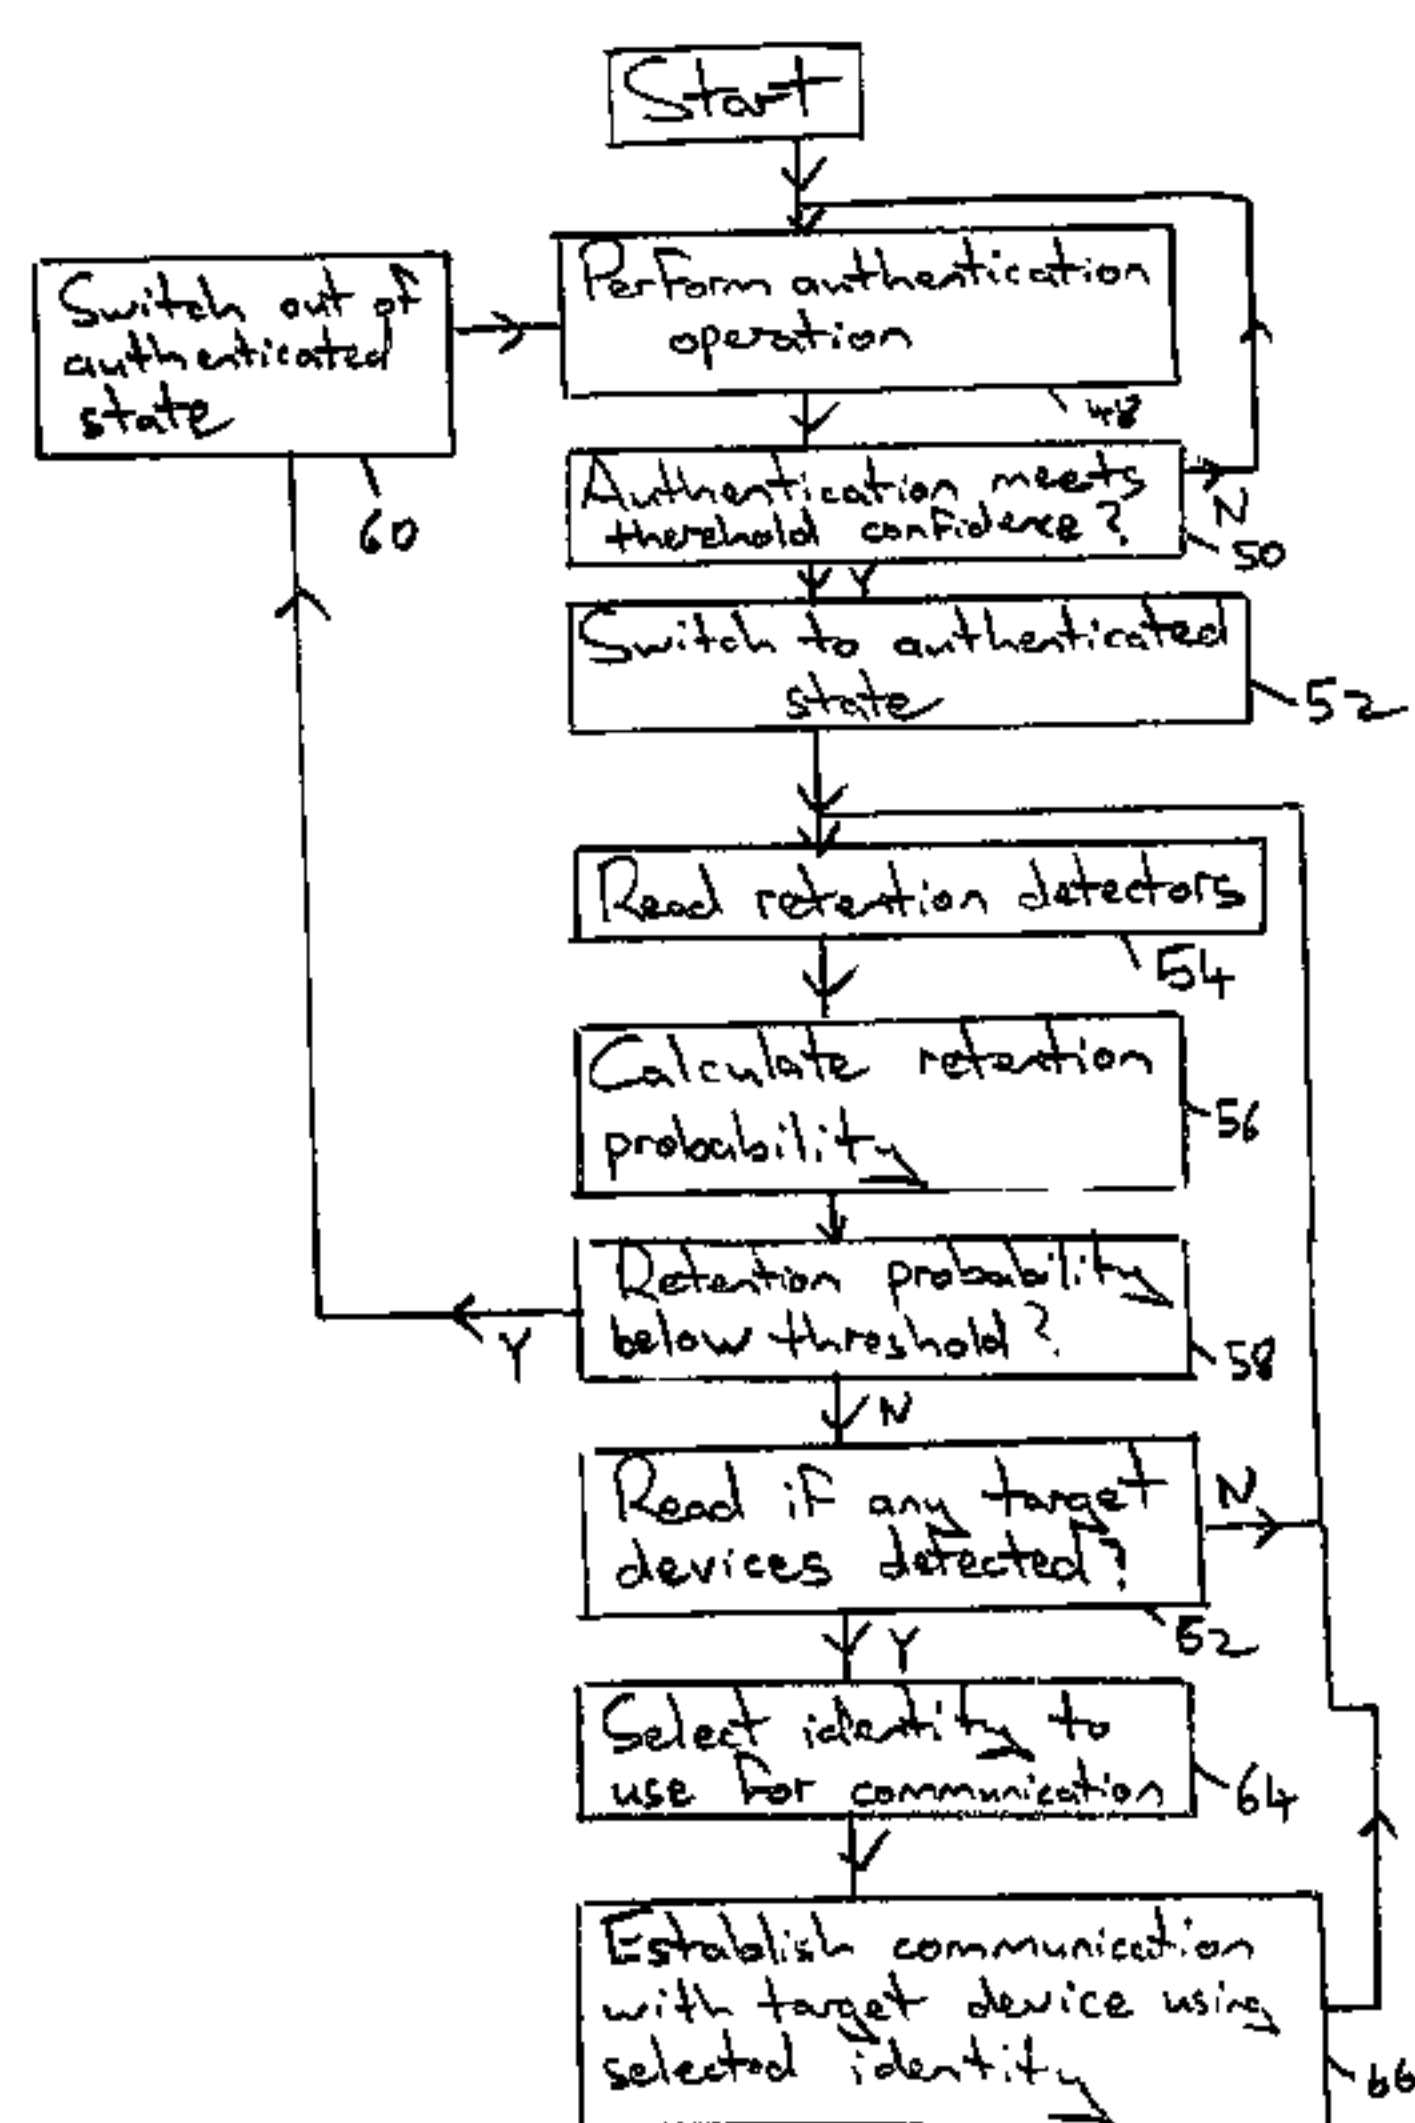 Start
Perform authentication
operation
48
Switch out of
authenticated
state
60
Authentication meets
therehold confidence?
N
50
Y
Switch to authenticated
state
52
Read retention detectors
54
Calculate retention
probability
56
Retention probability
below threshold?
58
Y
N
Read if any target
devices detected?
N
52
Y
Select identity to
use for communication
64
Establish communication
with target device using
selected identity
66